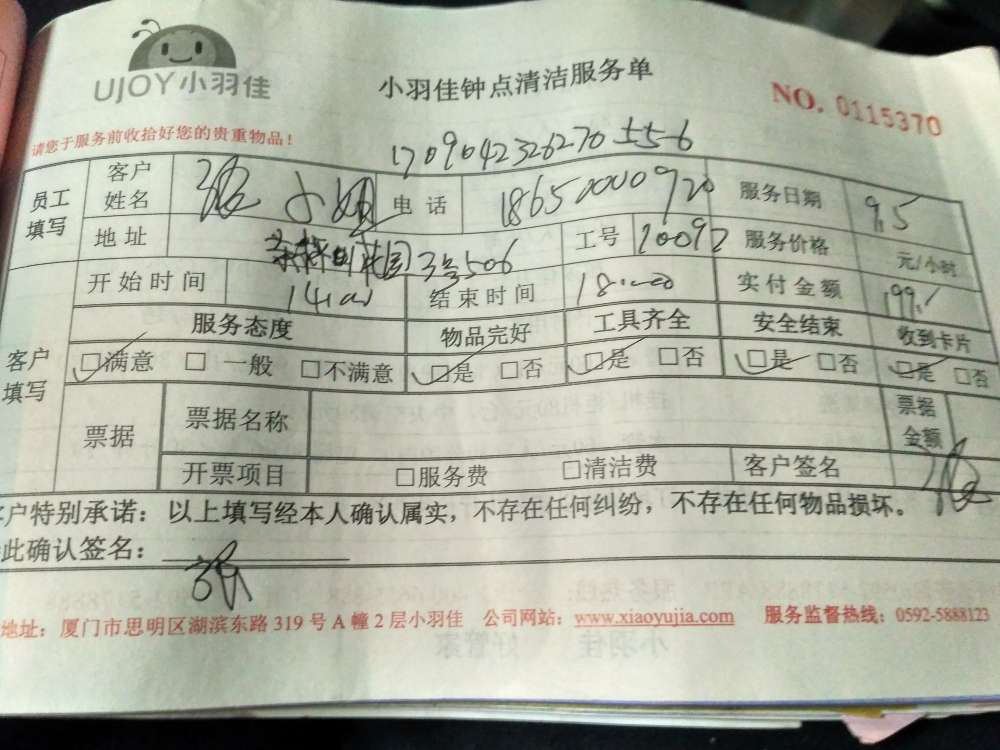 UJOY小羽佳
小羽佳钟点清洁服务单
NO. 0115370
请您于服务前收拾好您的贵重物品！
员工填写 客户姓名 张小姐 电话 18650000920 服务日期 9.5
地址 3号506 工号 20092 服务价格 元/小时
客户填写 开始时间 14:00 结束时间 18:00 实付金额 199.
服务态度 物品完好 工具齐全 安全结束 收到卡片
☑满意 □一般 □不满意 ☑是 □否 ☑是 □否 ☑是 □否 ☑是 □否
票据 票据名称 票据金额
开票项目 □服务费 □清洁费 客户签名 张
客户特别承诺：以上填写经本人确认属实，不存在任何纠纷，不存在任何物品损坏。
此确认签名： 张
地址：厦门市思明区湖滨东路 319 号 A 幢 2 层小羽佳 公司网站：www.xiaoyujia.com 服务监督热线：0592-5888123